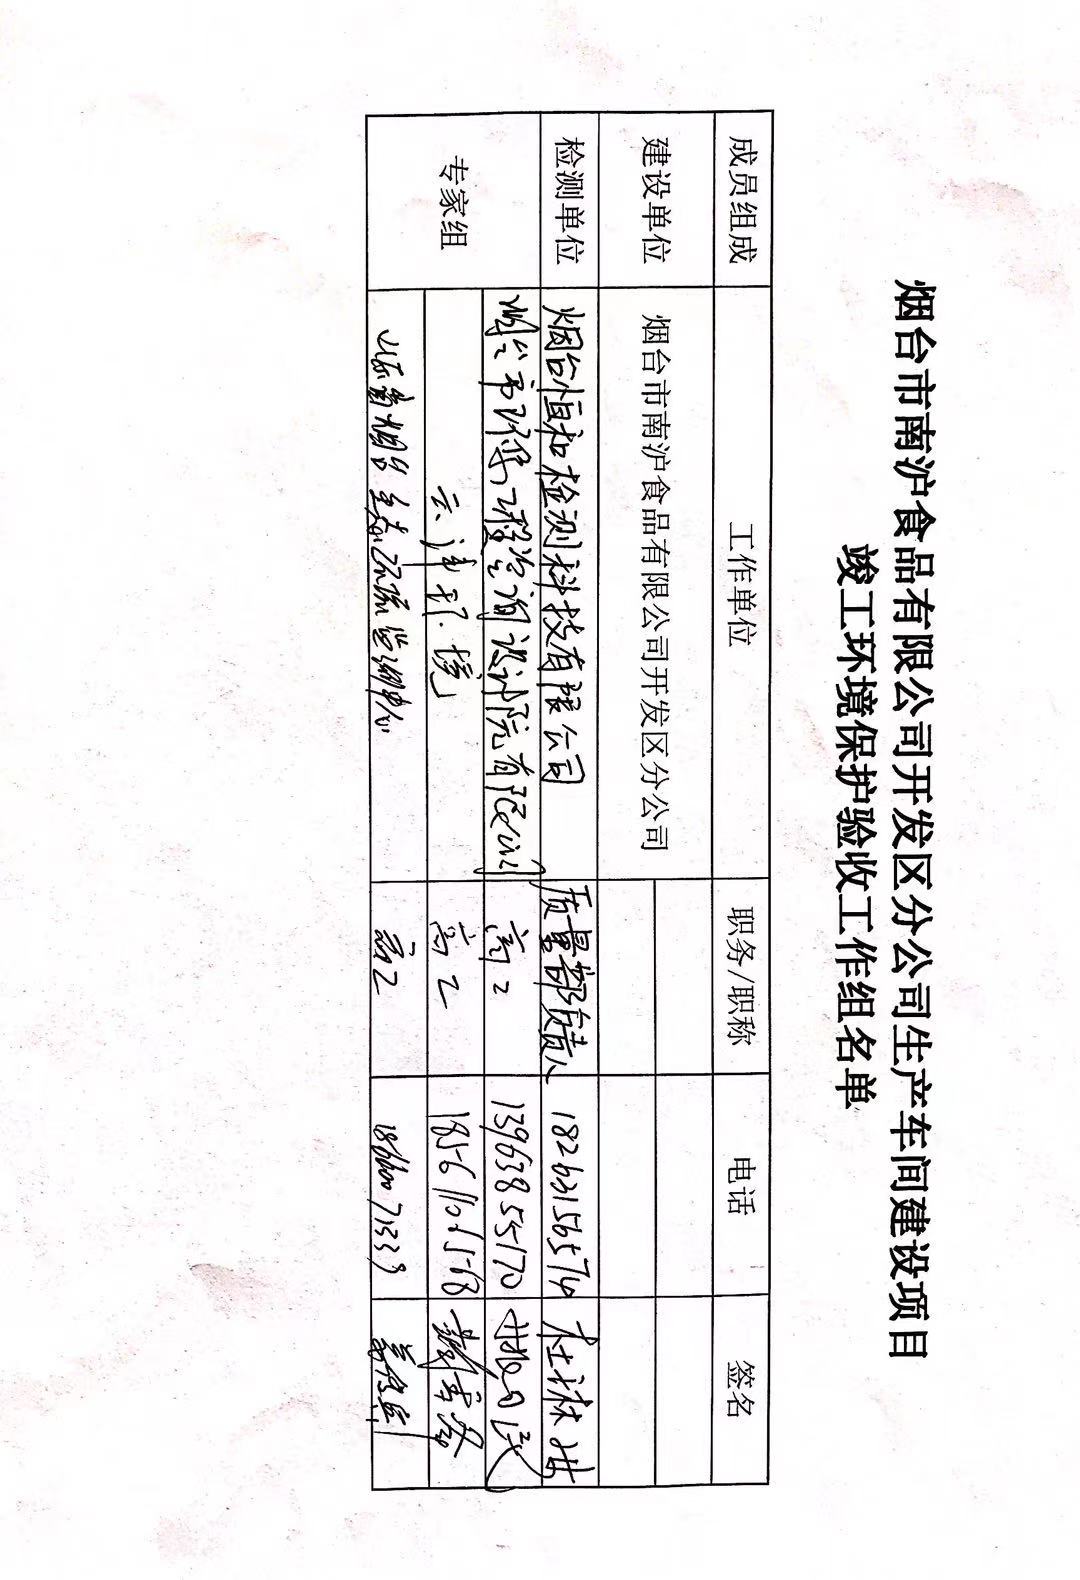 烟台市南沪食品有限公司开发区分公司生产车间建设项目
竣工环境保护验收工作组名单
成员组成 工作单位 职务/职称 电话 签名
建设单位 烟台市南沪食品有限公司开发区分公司
检测单位 烟台恒和检测科技有限公司 质量部负责人 18263156574
专家组 烟台市环保工程咨询设计院有限公司 高工 13963855170
高工 18561101568
山东省烟台生态环境监测中心 高工 18660071333